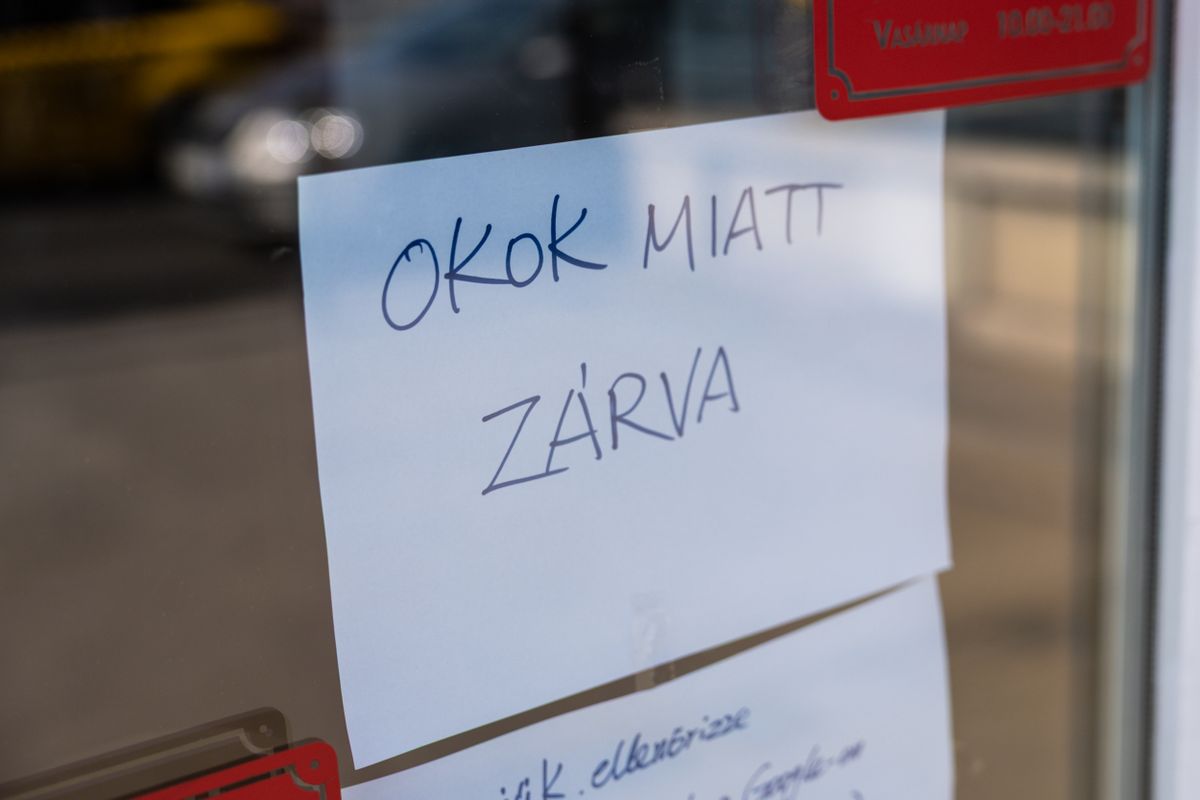 VASÁRNAP 10.00-21.00
OKOK MIATT
ZÁRVA
ellenőrizze
Google-en